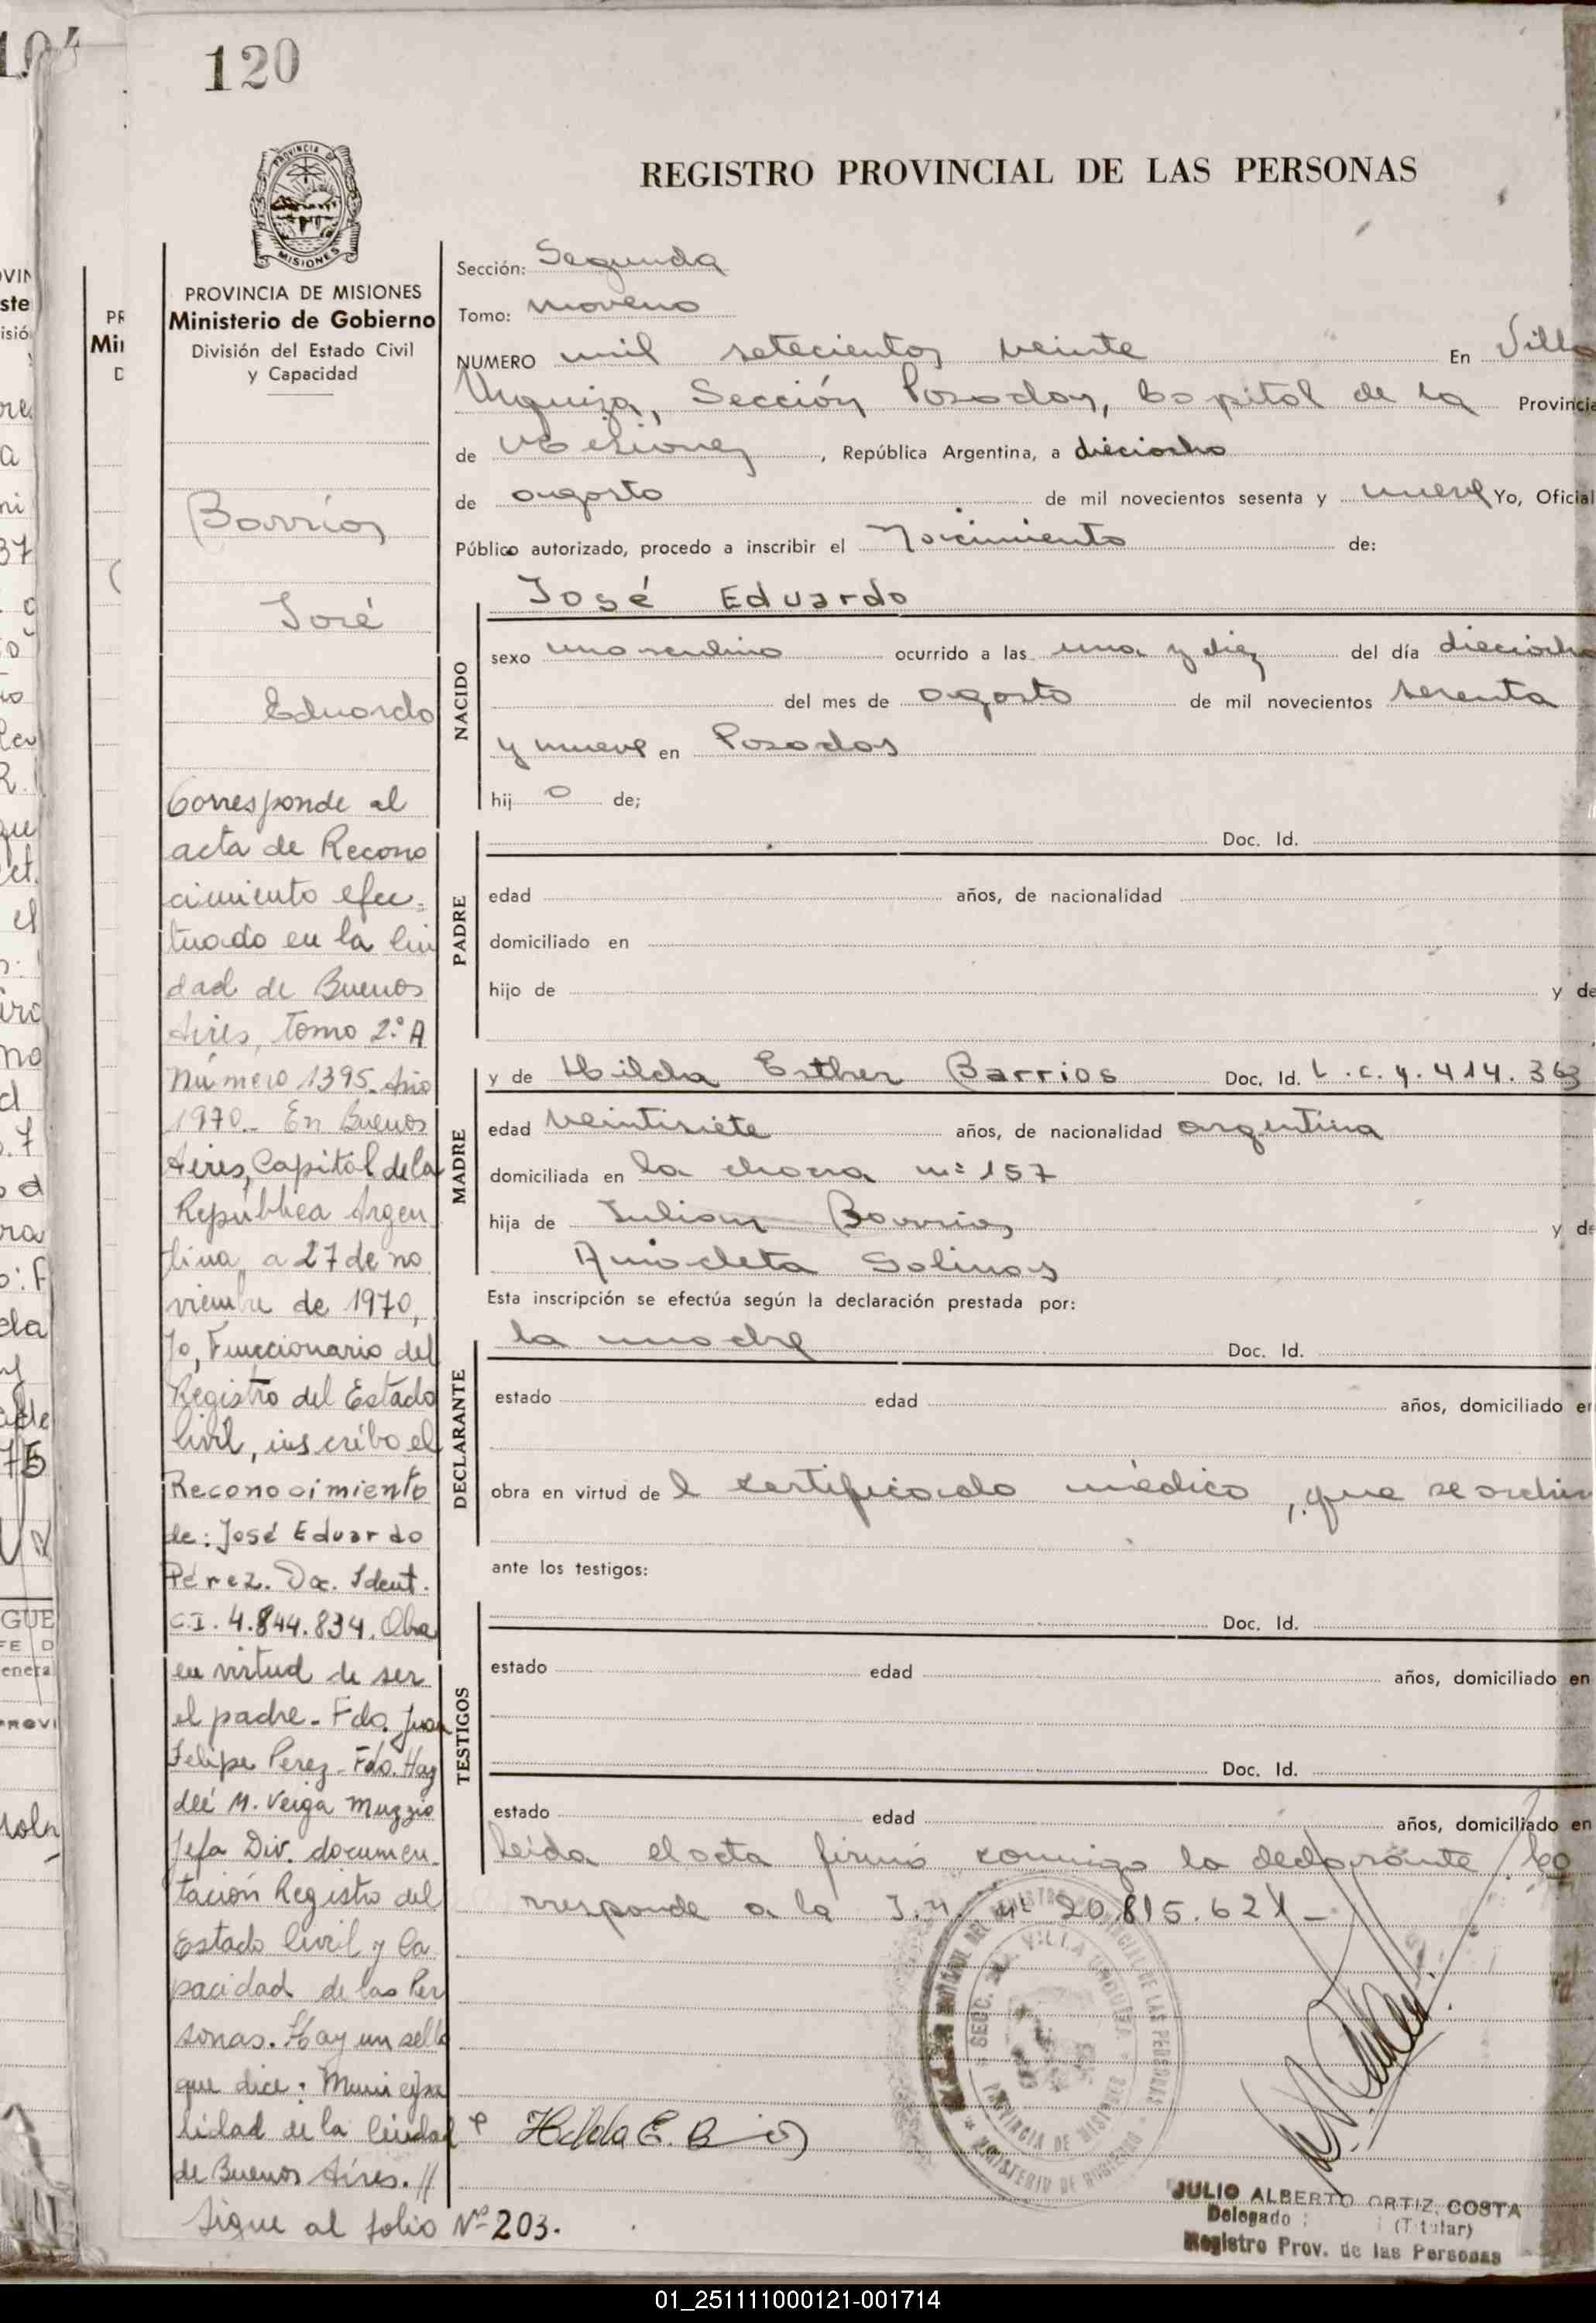 120
PROVINCIA DE MISIONES
REGISTRO PROVINCIAL DE LAS PERSONAS
PROVINCIA DE MISIONES
Ministerio de Gobierno
División del Estado Civil
y Capacidad
Barrios
José
Eduardo
Corresponde al
acta de Recono
cimiento efec-
tuado en la Ciu
dad de Buenos
Aires, tomo 2.º A
Número 1395. Año
1970.- En Buenos
Aires, Capital de la
República Argen
tina, a 27 de no
viembre de 1970,
Yo, Funcionario del
Registro del Estado
Civil, inscribo el
Reconocimiento
de: José Eduardo
Pérez. Doc. Ident.
C.I. 4.844.834. Obra
en virtud de ser
el padre. - Fdo. Juan
Felipe Perez - Fdo. Hay
deé M. Veiga Muzzio
Jefa Div. documen-
tación Registro del
Estado Civil y Ca
pacidad de las Per
sonas. Hay un sello
que dice: Municipa
lidad de la Ciudad
de Buenos Aires. //
Sigue al folio Nº 203.
Sección: Segunda
Tomo: noveno
NUMERO mil setecientos veinte En Villa
Urquiza, Sección Posadas, Capital de la Provincia
de Misiones, República Argentina, a dieciocho
de agosto de mil novecientos sesenta y nueve Yo, Oficial
Público autorizado, procedo a inscribir el Nacimiento de:
NACIDO
José Eduardo
sexo masculino ocurrido a las una y diez del día dieciocho
del mes de agosto de mil novecientos sesenta
y nueve en Posadas
hij o de;
PADRE
Doc. Id.
edad años, de nacionalidad
domiciliado en
hijo de y de
MADRE
y de Hilda Esther Barrios Doc. Id. L.C. 4.414.363
edad veintisiete años, de nacionalidad argentina
domiciliada en la chacra nº 157
hija de Julian Barrios y de
Anacleta Salinas
Esta inscripción se efectúa según la declaración prestada por:
DECLARANTE
la madre Doc. Id.
estado edad años, domiciliado en
obra en virtud de l certificado médico, que se archiv
ante los testigos:
TESTIGOS
Doc. Id.
estado edad años, domiciliado en
Doc. Id.
estado edad años, domiciliado en
Leida el acta firmó conmigo la declarante / Co
rresponde a la nº 20.815.621-
SECC. 2da. VILLA URQUIZA
PROVINCIA DE MISIONES
MINISTERIO DE GOBIERNO
Hilda E. B
JULIO ALBERTO ORTIZ COSTA
Delegado (Titular)
Registro Prov. de las Personas
01_251111000121-001714